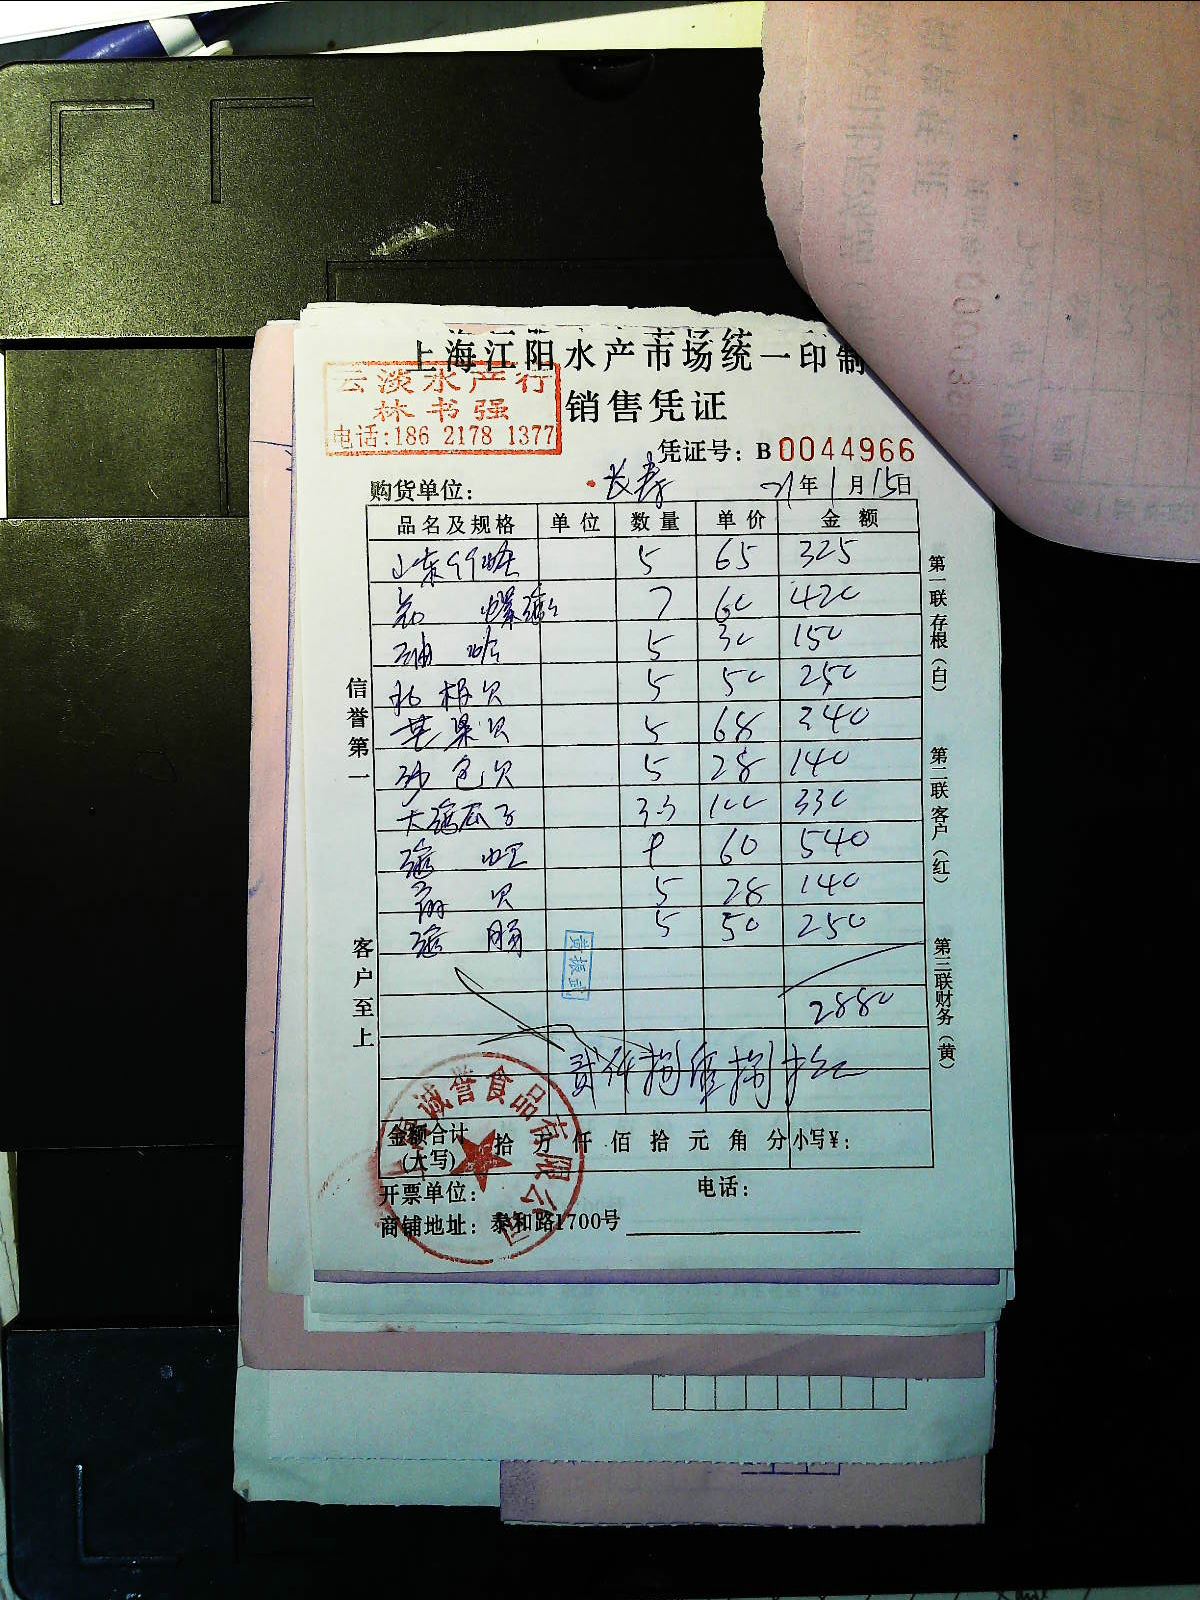 上海江阳水产市场统一印制
云淡水产行
林书强
电话:186 2178 1377
销售凭证
凭证号: B0044966
购货单位: 长寿 21年1月15日
品名及规格 单位 数量 单价 金额
山东 5 65 325
7 60 420
5 30 150
贝 5 50 250
贝 5 68 340
沙包贝 5 28 140
大海瓜子 3.3 100 330
海虹 9 60 540
贝 5 28 140
海肠 5 50 250
黄振武
2880
贰仟捌佰捌拾元
信誉第一
客户至上
第一联存根(白)
第二联客户(红)
第三联财务(黄)
诚誉食品有限公司
金额合计(大写) 拾万仟佰拾元角分 小写¥:
开票单位: 电话:
商铺地址: 泰和路1700号